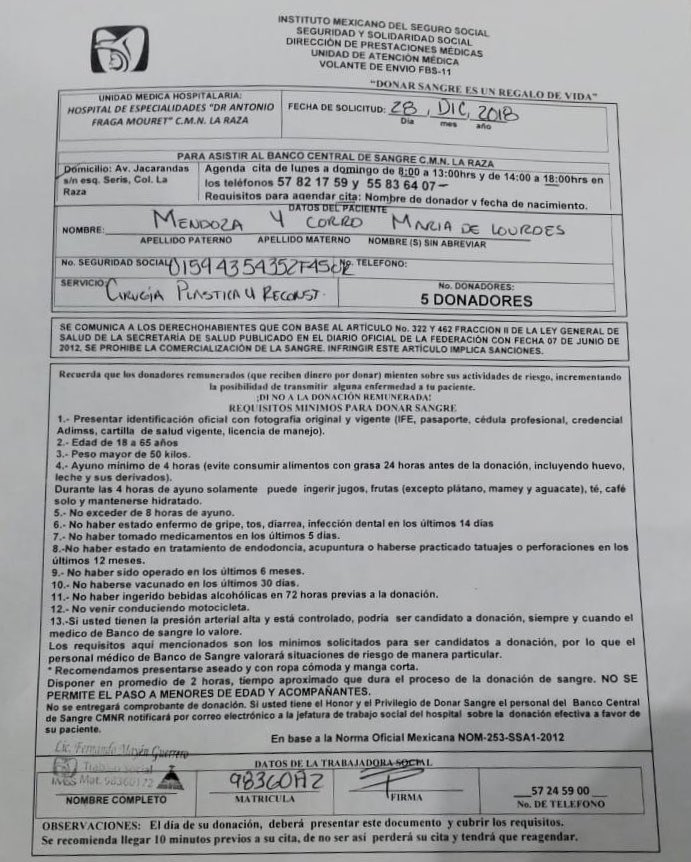 INSTITUTO MEXICANO DEL SEGURO SOCIAL
SEGURIDAD Y SOLIDARIDAD SOCIAL
DIRECCIÓN DE PRESTACIONES MÉDICAS
UNIDAD DE ATENCIÓN MÉDICA
VOLANTE DE ENVIO FBS-11
"DONAR SANGRE ES UN REGALO DE VIDA"
UNIDAD MEDICA HOSPITALARIA:
HOSPITAL DE ESPECIALIDADES "DR ANTONIO
FRAGA MOURET" C.M.N. LA RAZA
FECHA DE SOLICITUD: 28, DIC, 2018
Día mes año
PARA ASISTIR AL BANCO CENTRAL DE SANGRE C.M.N. LA RAZA
Domicilio: Av. Jacarandas
s/n esq. Seris, Col. La
Raza
Agenda cita de lunes a domingo de 8:00 a 13:00hrs y de 14:00 a 18:00hrs en
los teléfonos 57 82 17 59 y 55 83 64 07
Requisitos para agendar cita: Nombre de donador y fecha de nacimiento.
DATOS DEL PACIENTE
NOMBRE: MENDOZA Y CORRO MARIA DE LOURDES
APELLIDO PATERNO APELLIDO MATERNO NOMBRE (S) SIN ABREVIAR
No. SEGURIDAD SOCIAL No. TELEFONO:
SERVICIO: CIRUGÍA PLASTICA Y RECONST.
No. DONADORES:
5 DONADORES
SE COMUNICA A LOS DERECHOHABIENTES QUE CON BASE AL ARTÍCULO No. 322 Y 462 FRACCION II DE LA LEY GENERAL DE
SALUD DE LA SECRETARÍA DE SALUD PUBLICADO EN EL DIARIO OFICIAL DE LA FEDERACIÓN CON FECHA 07 DE JUNIO DE
2012, SE PROHIBE LA COMERCIALIZACIÓN DE LA SANGRE. INFRINGIR ESTE ARTÍCULO IMPLICA SANCIONES.
Recuerda que los donadores remunerados (que reciben dinero por donar) mienten sobre sus actividades de riesgo, incrementando
la posibilidad de transmitir alguna enfermedad a tu paciente.
¡DI NO A LA DONACIÓN REMUNERADA!
REQUISITOS MINIMOS PARA DONAR SANGRE
1.- Presentar identificación oficial con fotografía original y vigente (IFE, pasaporte, cédula profesional, credencial
Adimss, cartilla de salud vigente, licencia de manejo).
2.- Edad de 18 a 65 años
3.- Peso mayor de 50 kilos.
4.- Ayuno mínimo de 4 horas (evite consumir alimentos con grasa 24 horas antes de la donación, incluyendo huevo,
leche y sus derivados).
Durante las 4 horas de ayuno solamente puede ingerir jugos, frutas (excepto plátano, mamey y aguacate), té, café
solo y mantenerse hidratado.
5.- No exceder de 8 horas de ayuno.
6.- No haber estado enfermo de gripe, tos, diarrea, infección dental en los últimos 14 días
7.- No haber tomado medicamentos en los últimos 5 días.
8.-No haber estado en tratamiento de endodoncia, acupuntura o haberse practicado tatuajes o perforaciones en los
últimos 12 meses.
9.- No haber sido operado en los últimos 6 meses.
10.- No haberse vacunado en los últimos 30 días.
11.- No haber ingerido bebidas alcohólicas en 72 horas previas a la donación.
12.- No venir conduciendo motocicleta.
13.-Si usted tiene la presión arterial alta y está controlado, podría ser candidato a donación, siempre y cuando el
medico de Banco de sangre lo valore.
Los requisitos aquí mencionados son los mínimos solicitados para ser candidatos a donación, por lo que el
personal médico de Banco de Sangre valorará situaciones de riesgo de manera particular.
* Recomendamos presentarse aseado y con ropa cómoda y manga corta.
Disponer en promedio de 2 horas, tiempo aproximado que dura el proceso de la donación de sangre. NO SE
PERMITE EL PASO A MENORES DE EDAD Y ACOMPAÑANTES.
No se entregará comprobante de donación. Si usted tiene el Honor y el Privilegio de Donar Sangre el personal del Banco Central
de Sangre CMNR notificará por correo electrónico a la jefatura de trabajo social del hospital sobre la donación efectiva a favor de
su paciente.
En base a la Norma Oficial Mexicana NOM-253-SSA1-2012
Lic. Fernando Mayén Guerrero
Trabajo Social
IMSS Mat. 98360172
DATOS DE LA TRABAJADORA SOCIAL
NOMBRE COMPLETO
MATRICULA
FIRMA
57 24 59 00
No. DE TELEFONO
OBSERVACIONES: El día de su donación, deberá presentar este documento y cubrir los requisitos.
Se recomienda llegar 10 minutos previos a su cita, de no ser así perderá su cita y tendrá que reagendar.